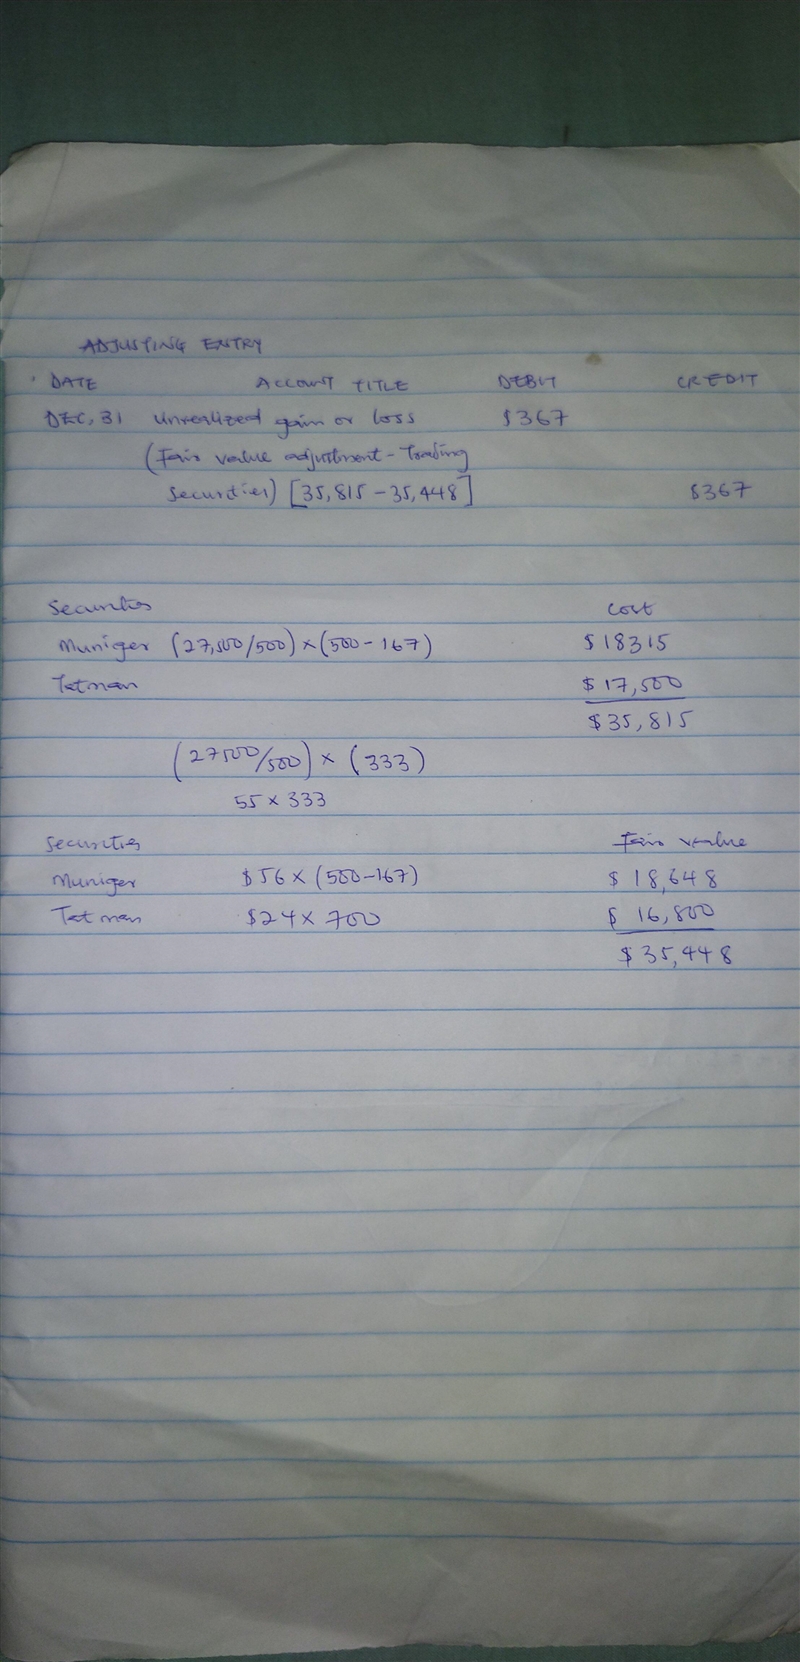 ADJUSTING ENTRY
DATE ACCOUNT TITLE DEBIT CREDIT
DEC, 31 unrealized gain or loss $367
(Fair value adjustment - Trading
securities) [35,815 - 35,448] $367
Securities Cost
Muniger (27,500/500) × (500 - 167) $18315
Tatman $17,500
$35,815
(27500/500) × (333)
55 × 333
Securities Fair value
Muniger $56 × (500-167) $18,648
Tatman $24 × 700 $16,800
$35,448